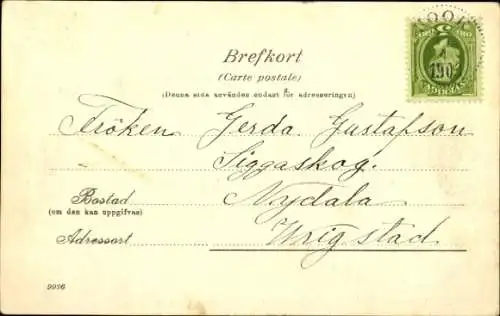 Brefkort
(Carte postale)
(Denna sida användes endast för adresseringen)
Fröken Gerda Gustafson
Siggaskog.
Bostad Nydala
(om den kan uppgifvas)
Adressort Wrigstad
9996